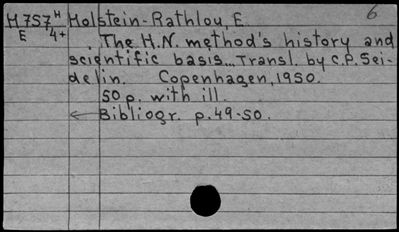 6
M757 H Holstein-Rathlou, E.
E 4+ The H.N. method's history and
scientific basis... Transl. by C.P. Sei-
delin. Copenhagen, 1950.
50 p. with ill.
← Bibliogr. p. 49-50.